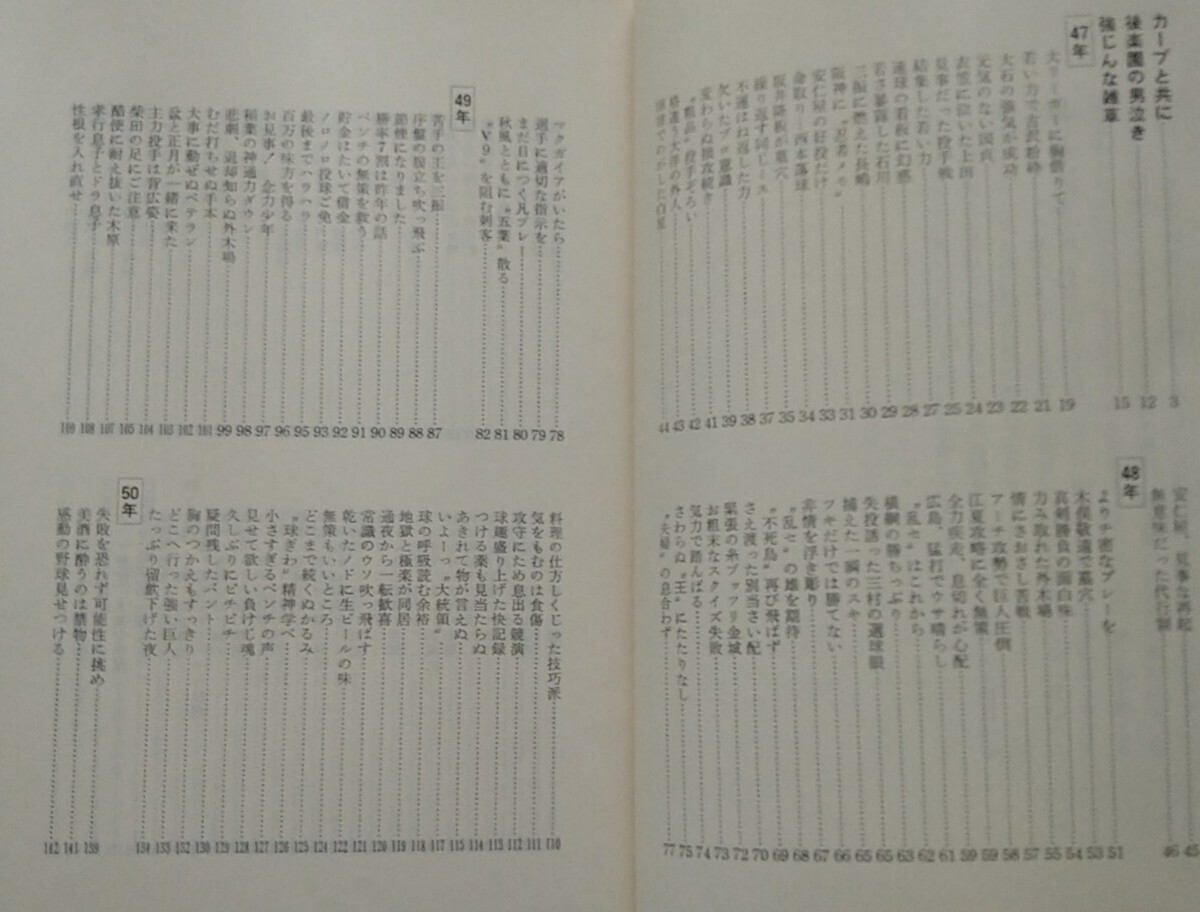 カープと共に……3
後楽園の男泣き……12
強じんな雑草……15
47年
大リーガーに胸借りて……19
若い力で古沢粉砕……21
大石の強気が成功……22
元気のない国貞……23
衣笠に泣いた上田……24
見事だった投手戦……25
結集した若い力……27
速球の看板に幻惑……28
若さ暴露した石川……29
三振に燃えた長嶋……30
阪神に“忍者メモ”……31
安仁屋の好投だけ……33
金取り…西本落球……34
坂井降板が墓穴……35
繰り返す同じミス……37
不運はね返した力……38
欠いたプロ意識……39
変わらぬ拙攻続き……41
“粗品”投手ぞろい……42
格が違う大洋の外人……43
演出でのがした白星……44
安仁屋、見事な再起……45
無意味だった代行制……46
48年
よりチ密なプレーを……51
木俣敬遠で墓穴……53
真剣勝負の面白味……54
力み取れた外木場……55
情にさおさし苦戦……57
アーチ攻勢で巨人圧倒……58
江夏攻略に全く無策……59
全力疾走、息切れが心配……59
広島、猛打でウサ晴らし……61
“乱セ”はこれから……62
横綱の勝ちっぷり……63
失投誘った三村の選球眼……65
捕えた一瞬のスキ……65
ツキだけでは勝てない……66
非情を浮き彫り……67
“乱セ”の雄を期待……68
“不死鳥”再び飛ばず……69
さえ渡った別当さい配……70
緊張の糸プッツリ金城……72
お粗末なスクイズ失敗……73
気力で踏んばる……74
さわらぬ“王”にたたりなし……75
“夫婦”の息合わず……77
マクガイアがいたら……78
選手に適切な指示を……79
まだ目につく凡プレー……80
秋風とともに“五葉”散る……81
“V9”を阻む刺客……82
49年
苦手の王を三振……87
序盤の腹立ち吹っ飛ぶ……88
節穂になりました……89
勝率7割は昨年の話……90
ベンチの無策を救う……91
貯金はたいて借金……92
ノロノロ投球ご免……93
最後までハラハラ……95
百万の味方を得る……96
お見事！金力少年……97
稲葉の神通力ダウン……98
悲劇、退却知らぬ外木場……99
むだ打ちせぬ手本……101
大事に動ぜぬベテラン……102
盆と正月が一緒に来た……103
主力投手は背広姿……104
柴田の足にご注意……105
酷使に耐え抜いた木原……107
孝行息子とドラ息子……108
性根を入れ直せ……109
料理の仕方しくじった技巧派……110
気をもむのは食傷……111
攻守にため息出る競演……112
球趣盛り上げた快記録……113
つける薬も見当たらぬ……114
あきれて物が言えぬ……115
いよーっ“大統領”……117
球の呼吸読む余裕……118
地獄と極楽が同居……119
通夜から一転歓喜……120
常識のウソ吹っ飛ばす……121
乾いたノドに生ビールの味……122
無策もいいところ……124
どこまで続くぬかるみ……125
“球ぎわ”精神学べ……126
小さすぎるベンチの声……127
見せて欲しい負けじ魂……128
久しぶりにピチピチ……129
疑問残したバント……130
胸のつかえもすっきり……132
どこへ行った強い巨人……133
たっぷり留飲下げた夜……134
50年
失敗を恐れず可能性に挑め……139
美酒に酔うのは禁物……141
感動の野球見せつける……142